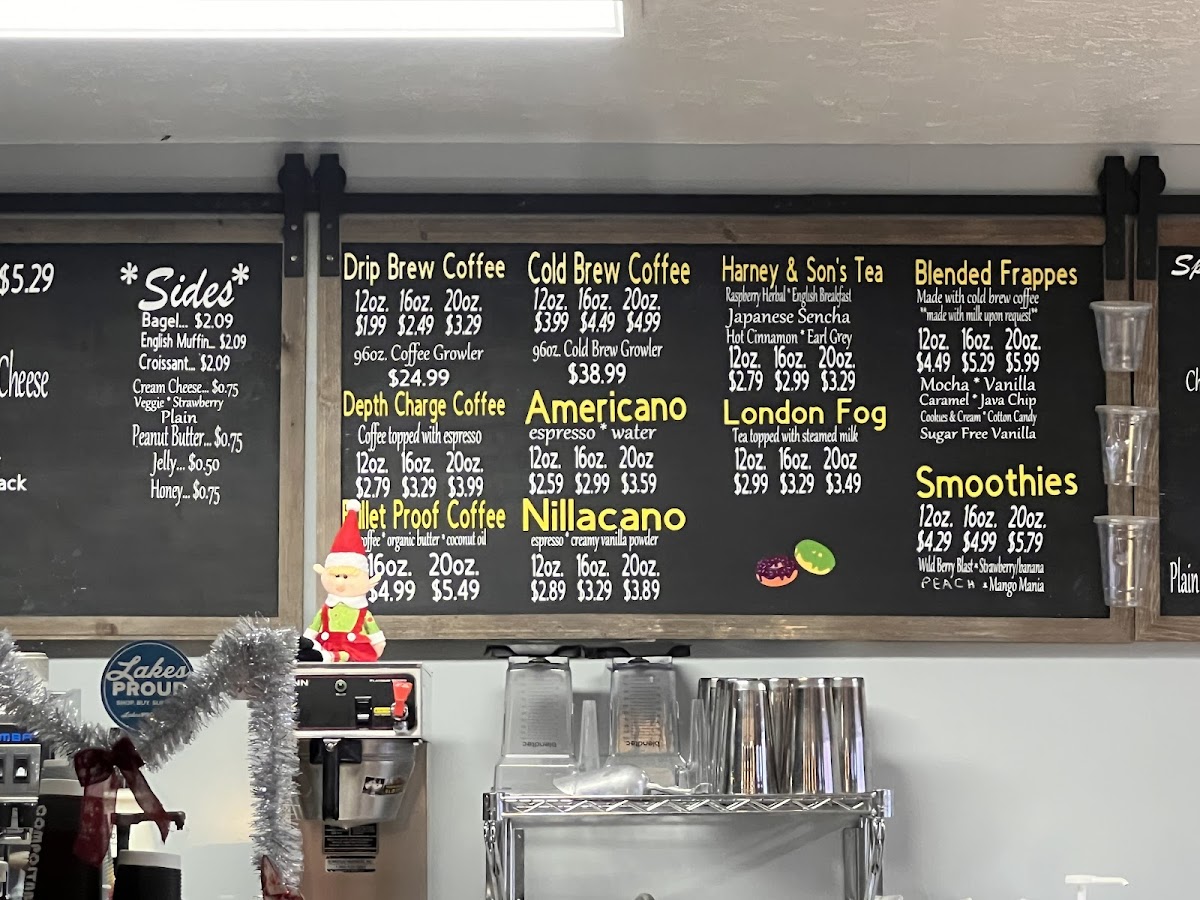 $5.29
Cheese
ack
*Sides*
Bagel... $2.09
English Muffin... $2.09
Croissant... $2.09
Cream Cheese... $0.75
Veggie * Strawberry
Plain
Peanut Butter... $0.75
Jelly... $0.50
Honey... $0.75
Drip Brew Coffee
12oz. 16oz. 20oz.
$1.99 $2.49 $3.29
96oz. Coffee Growler
$24.99
Depth Charge Coffee
Coffee topped with espresso
12oz. 16oz. 20oz.
$2.79 $3.29 $3.99
llet Proof Coffee
coffee * organic butter * coconut oil
16oz. 20oz.
$4.99 $5.49
Cold Brew Coffee
12oz. 16oz. 20oz.
$3.99 $4.49 $4.99
96oz. Cold Brew Growler
$38.99
Americano
espresso * water
12oz. 16oz. 20oz
$2.59 $2.99 $3.59
Nillacano
espresso * creamy vanilla powder
12oz. 16oz. 20oz.
$2.89 $3.29 $3.89
Harney & Son's Tea
Raspberry Herbal * English Breakfast
Japanese Sencha
Hot Cinnamon * Earl Grey
12oz. 16oz. 20oz.
$2.79 $2.99 $3.29
London Fog
Tea topped with steamed milk
12oz. 16oz. 20oz
$2.99 $3.29 $3.49
Blended Frappes
Made with cold brew coffee
**made with milk upon request**
12oz. 16oz. 20oz.
$4.49 $5.29 $5.99
Mocha * Vanilla
Caramel * Java Chip
Cookies & Cream * Cotton Candy
Sugar Free Vanilla
Smoothies
12oz. 16oz. 20oz.
$4.29 $4.99 $5.79
Wild Berry Blast * Strawberry/banana
PEACH * Mango Mania
Sp
Ch
Plain
Lakes
PROUD
SHOP. BUY.
NN
MBA
blendtec
blendtec